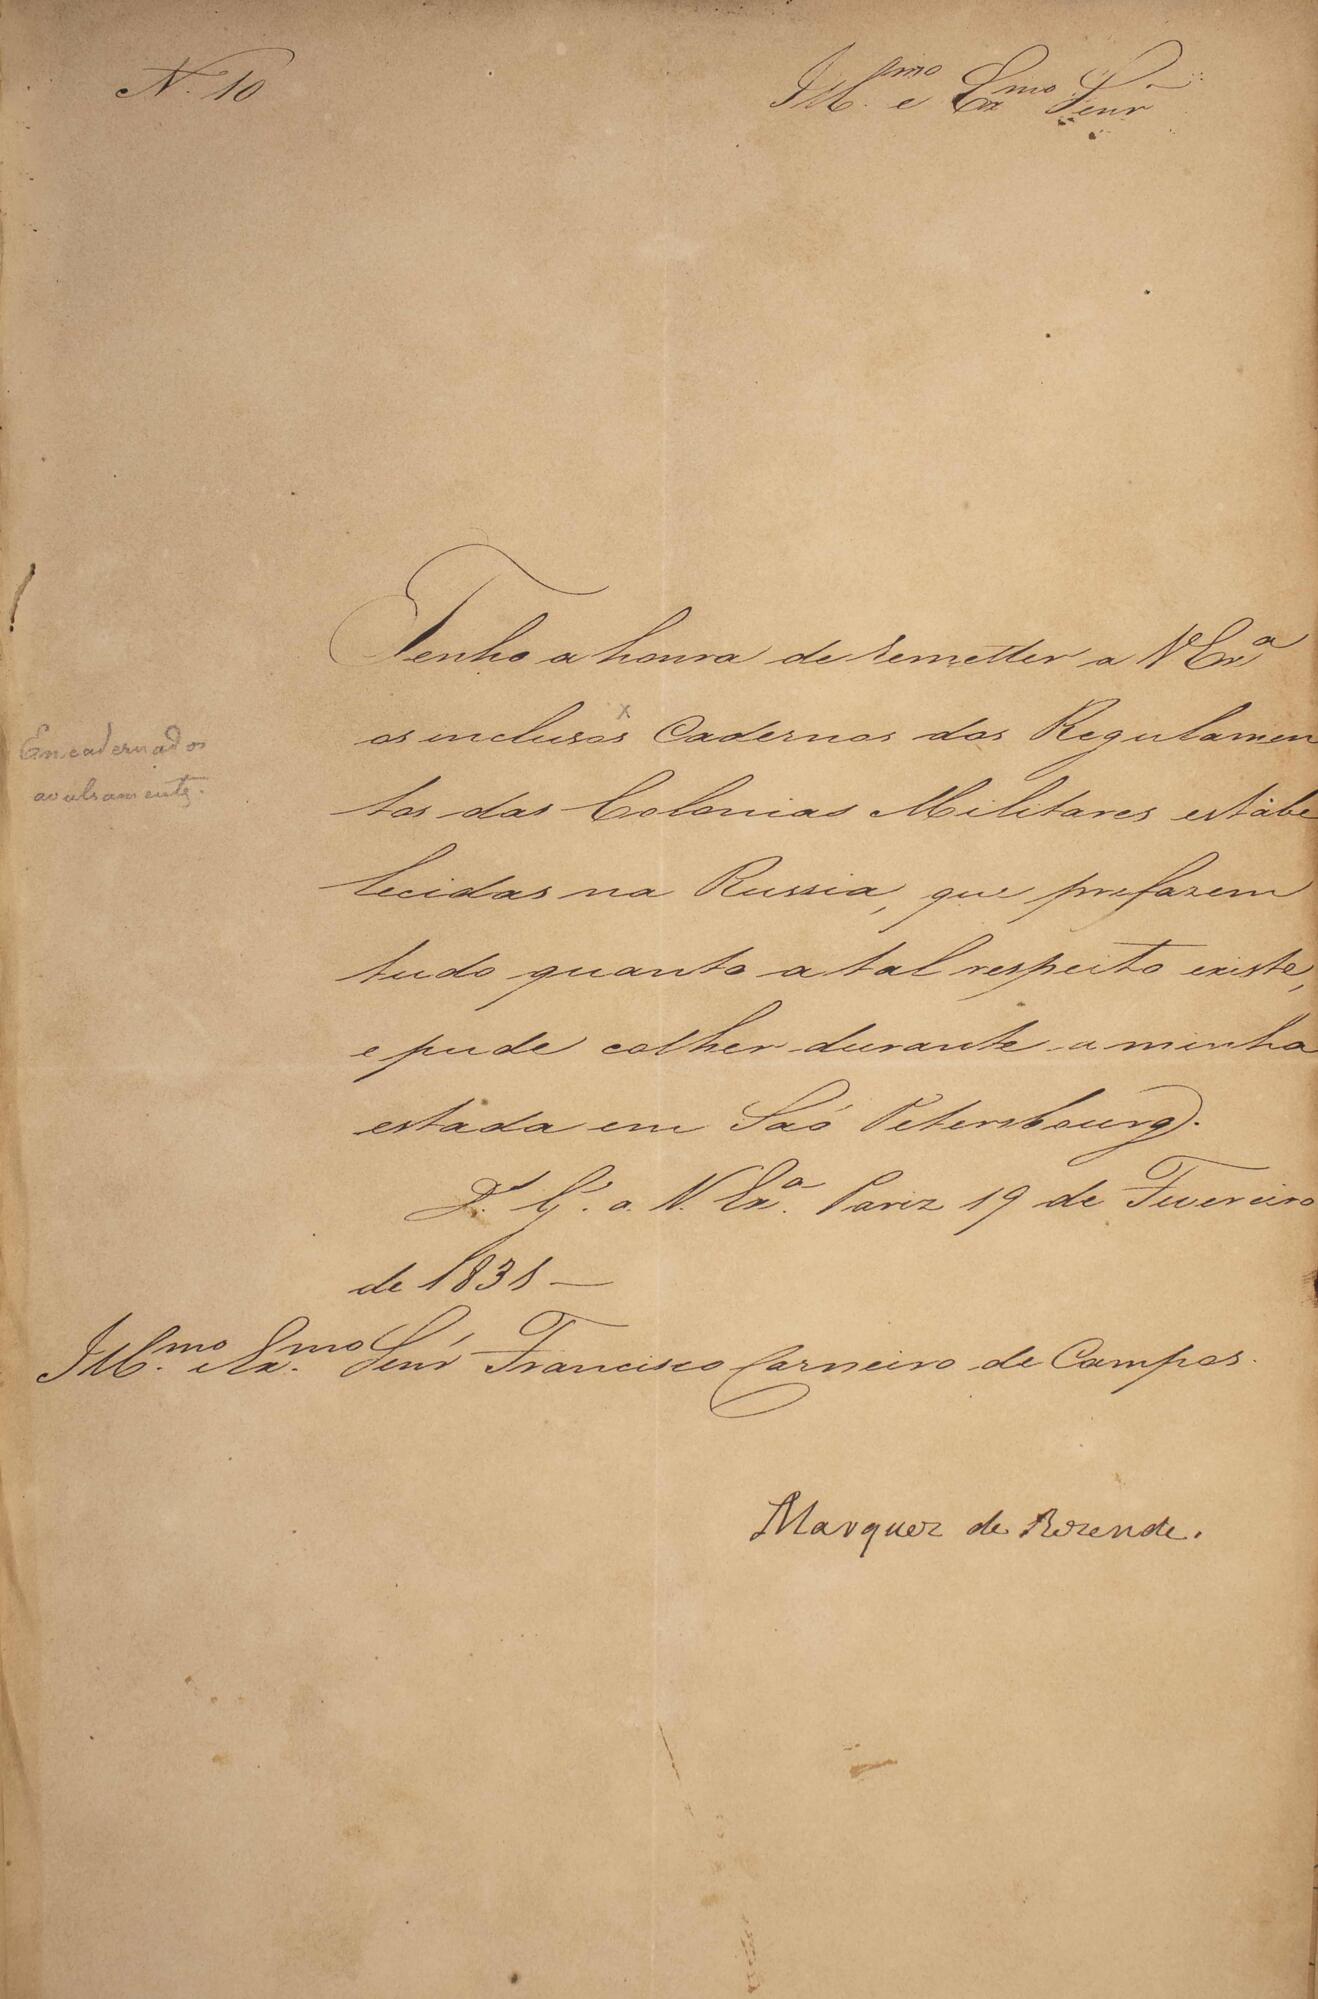 N. 10
Ill.mo e Ex.mo Senr
Tenho a honra de remetter a V Exª
os inclusos x Cadernos dos Regulamen
tos das Colonias Militares estabe
lecidas na Russia, que prefazem
tudo quanto a tal respeito existe,
e pude colher durante a minha
estada em Saõ Petersbourg.
Encadernados
avulsamente.
D.s G.e a V. Exª. Pariz 19 de Fevereiro
de 1831 —
Ill.mo e Ex.mo Senr Francisco Carneiro de Campos.
Marquez de Rezende.